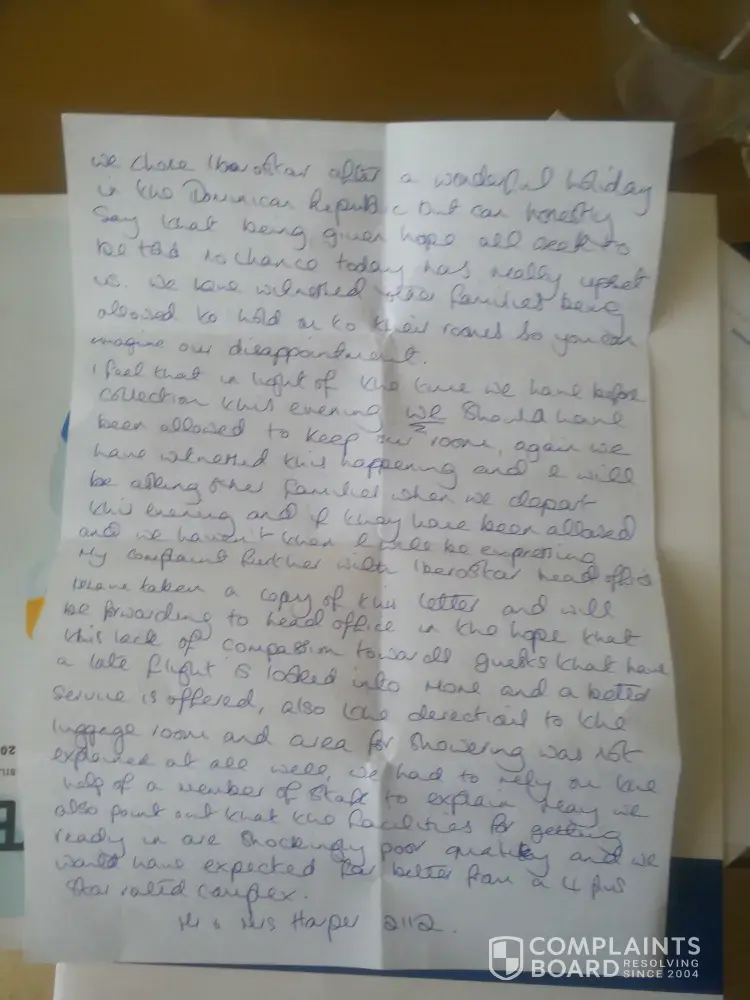 we chose Iberostar after a wonderful holiday
in the Dominican Republic but can honestly
say that being given hope all week to
be told no chance today has really upset
us. we have witnessed other families being
allowed to hold on to their rooms so you can
imagine our disappointment.
I feel that in light of the time we have before
collection this evening we should have
been allowed to keep our room, again we
have witnessed this happening and I will
be asking other families when we depart
this evening and if they have been allowed
and we haven't then I will be expressing
My complaint further with Iberostar head office
I have taken a copy of this letter and will
be forwarding to head office in the hope that
this lack of compassion towards guests that have
a late flight is looked into more and a better
service is offered, also the directions to the
luggage room and area for showering was not
explained at all well, we had to rely on the
help of a member of staff to explain. I may we
also point out that the facilities for getting
ready in are shockingly poor quality and we
would have expected far better from a 4 plus
star rated complex.
Mr & Mrs Harper 2112.
COMPLAINTS
BOARD RESOLVING
SINCE 2004